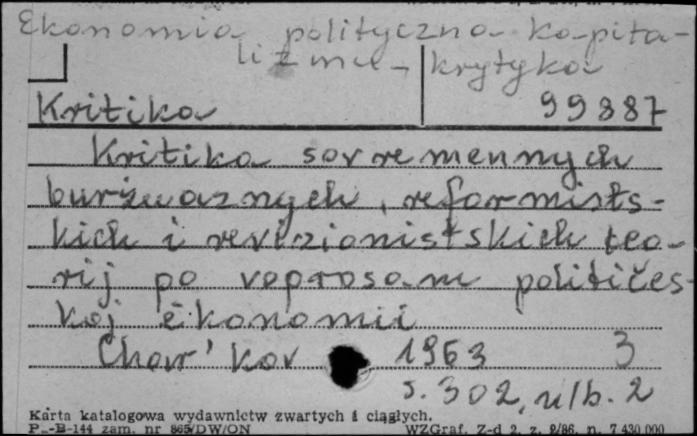 Ekonomia polityczna kapita-
lizmu - krytyka
Kritika 99887
Kritika sovremennych
buržuaznych, reformists-
kich i revizionistskich teo-
rij po voprosam političes-
koj ėkonomii
Char'kov 1963 3
s. 302, nlb. 2
Karta katalogowa wydawnictw zwartych i ciągłych.
P.-B-144 zam. nr 865/DW/ON WZGraf. Z-d 2, z. 2/86, n. 7 430 000